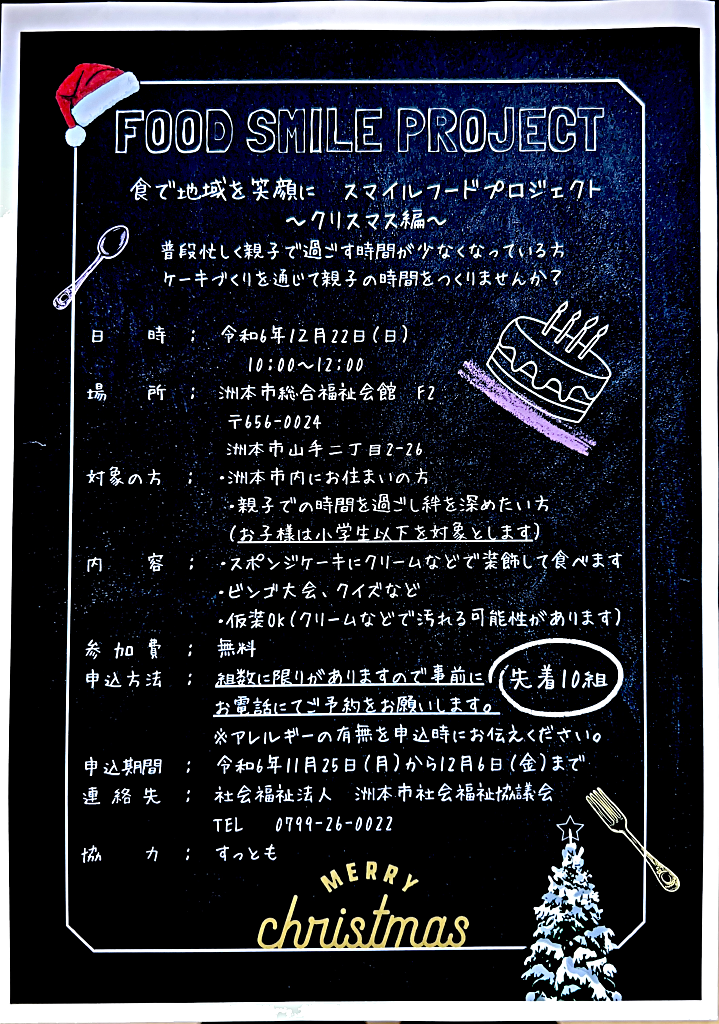 FOOD SMILE PROJECT
食で地域を笑顔に　スマイルフードプロジェクト
～クリスマス編～
普段忙しく親子で過ごす時間が少なくなっている方
ケーキづくりを通じて親子の時間をつくりませんか？
日　時　；　令和6年12月22日(日)
10:00～12:00
場　所　；　洲本市総合福祉会館　F2
〒656-0024
洲本市山手二丁目2-26
対象の方　；　・洲本市内にお住まいの方
・親子での時間を過ごし絆を深めたい方
(お子様は小学生以下を対象とします)
内　容　；　・スポンジケーキにクリームなどで装飾して食べます
・ビンゴ大会、クイズなど
・仮装OK(クリームなどで汚れる可能性があります)
参加費　；　無料
申込方法　；　組数に限りがありますので事前に
お電話にてご予約をお願いします。
先着10組
※アレルギーの有無を申込時にお伝えください。
申込期間　；　令和6年11月25日(月)から12月6日(金)まで
連絡先　；　社会福祉法人　洲本市社会福祉協議会
TEL　0799-26-0022
協　力　；　すっとも
MERRY
christmas